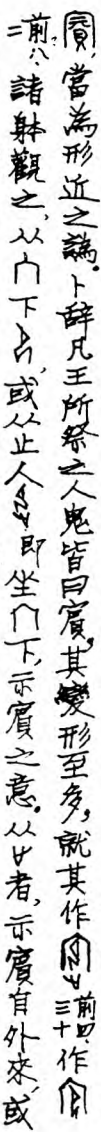 當為形近之譌。卜辭凡王所祭之人鬼皆曰賓,其變形至多,就其作 前四、三十 作
前八、二 諸躰觀之,从 下 ,或从止人 即坐 下,示賓之意。从 者,示賓自外來,或